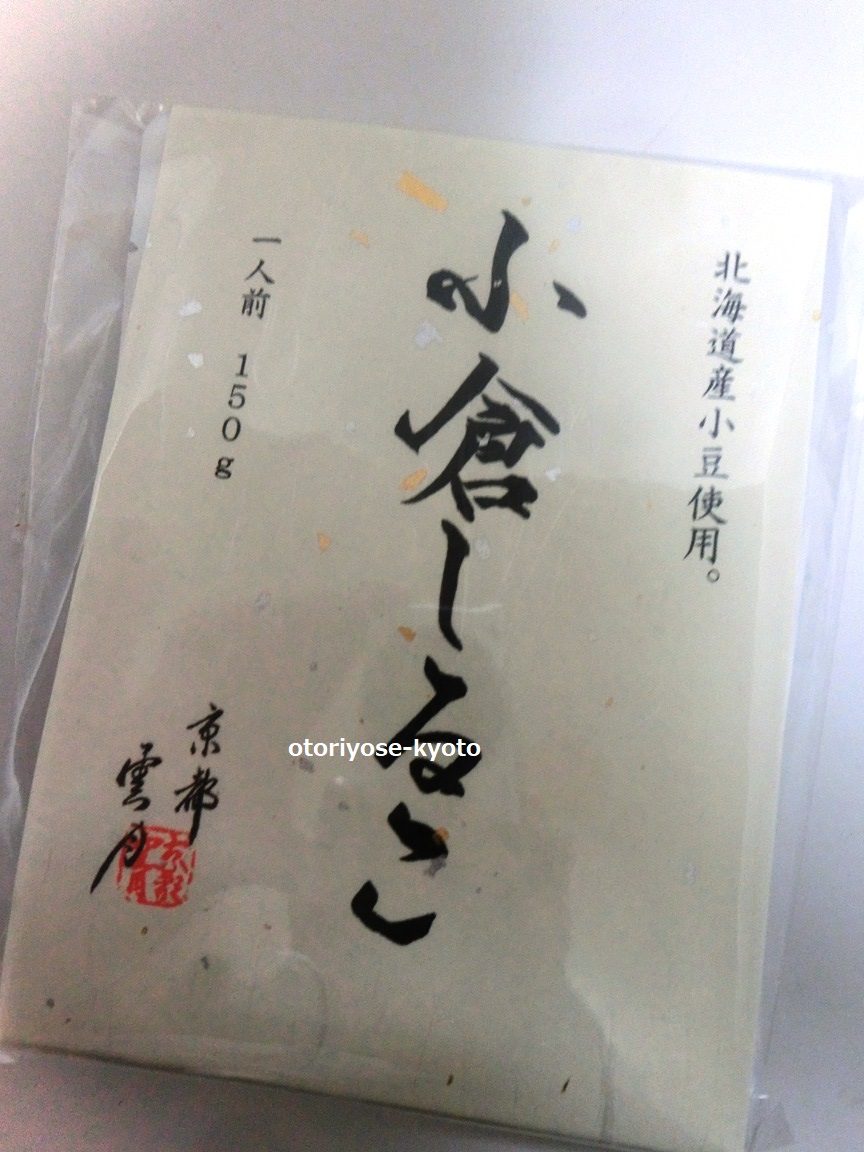 北海道産小豆使用。
小倉しるこ
一人前 150g
京都
雲月
otoriyose-kyoto